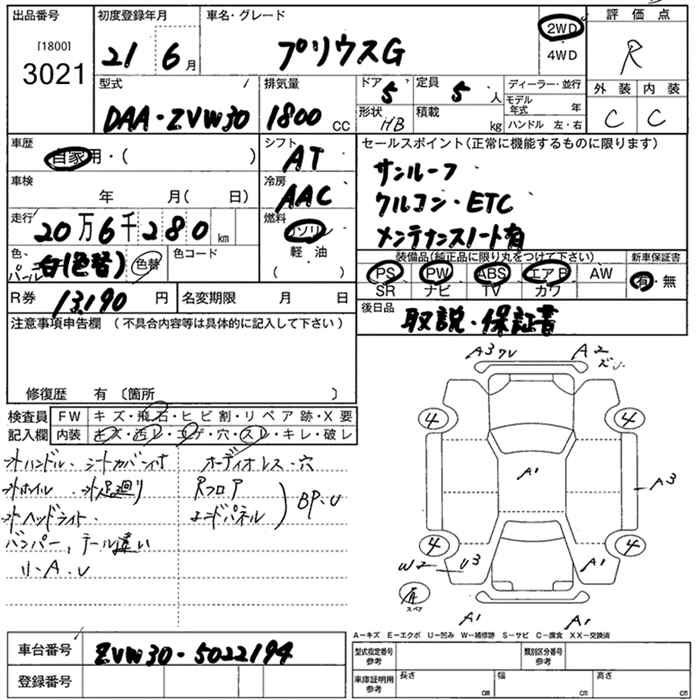 出品番号 初度登録年月 車名・グレード 評価点
[1800]
3021 21 6月 プリウスG 2WD 4WD R
型式 排気量 ドア 5 定員 5人 ディーラー・並行
DAA・ZVW30 1800 CC 形状 HB 積載 kg モデル年式 年 ハンドル 左・右
外装 内装
C C
車歴 自家用・( )
シフト AT
セールスポイント(正常に機能するものに限ります)
サンルーフ
クルコン・ETC
メンテナンスノート有
車検 年 月(日)
冷房 AAC
走行 20万6千280km
燃料 ガソリン 軽油 ( )
色 パール白(色替) 色替 色コード
装備品(純正品に限り丸をつけて下さい) 新車保証書
PS PW ABS エアB AW 有・無
SR ナビ TV カワ
R券 13,190円 名変期限 月 日
後日品 取説・保証書
注意事項申告欄(不具合内容等は具体的に記入して下さい)
修復歴 有〔箇所 〕
検査員記入欄 FW キズ・飛石・ヒビ割・リペア跡・X要
内装 キズ・汚レ・コゲ・穴・スレ・キレ・破レ
オーディオレス・穴
Rフロア
エンドパネル
BP・U
小ヘッドライト
バンパー、テール違い
リ・A・U
A3 ワレ A2
4 4
A1 A3
4 4
W2 U3 A1
スペア
A1 A1
A-キズ E-エクボ U-凹み W-補修跡 S-サビ C-腐食 XX-交換済
車台番号 ZVW30-5022194
登録番号
型式指定番号 参考 類別区分番号 参考
車庫証明用 参考 長さ cm 幅 cm 高さ cm